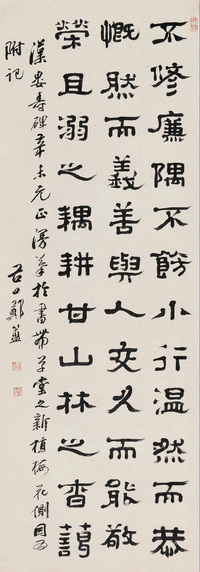 不修廉隅不飭小行温然而恭
慨然而義善與人交久而能敬
榮且溺之耦耕甘山林之杳藹
漢婁壽碑辛未元正漫筆於書帶草堂之新植梅花側因為
附記 谷口鄭簠